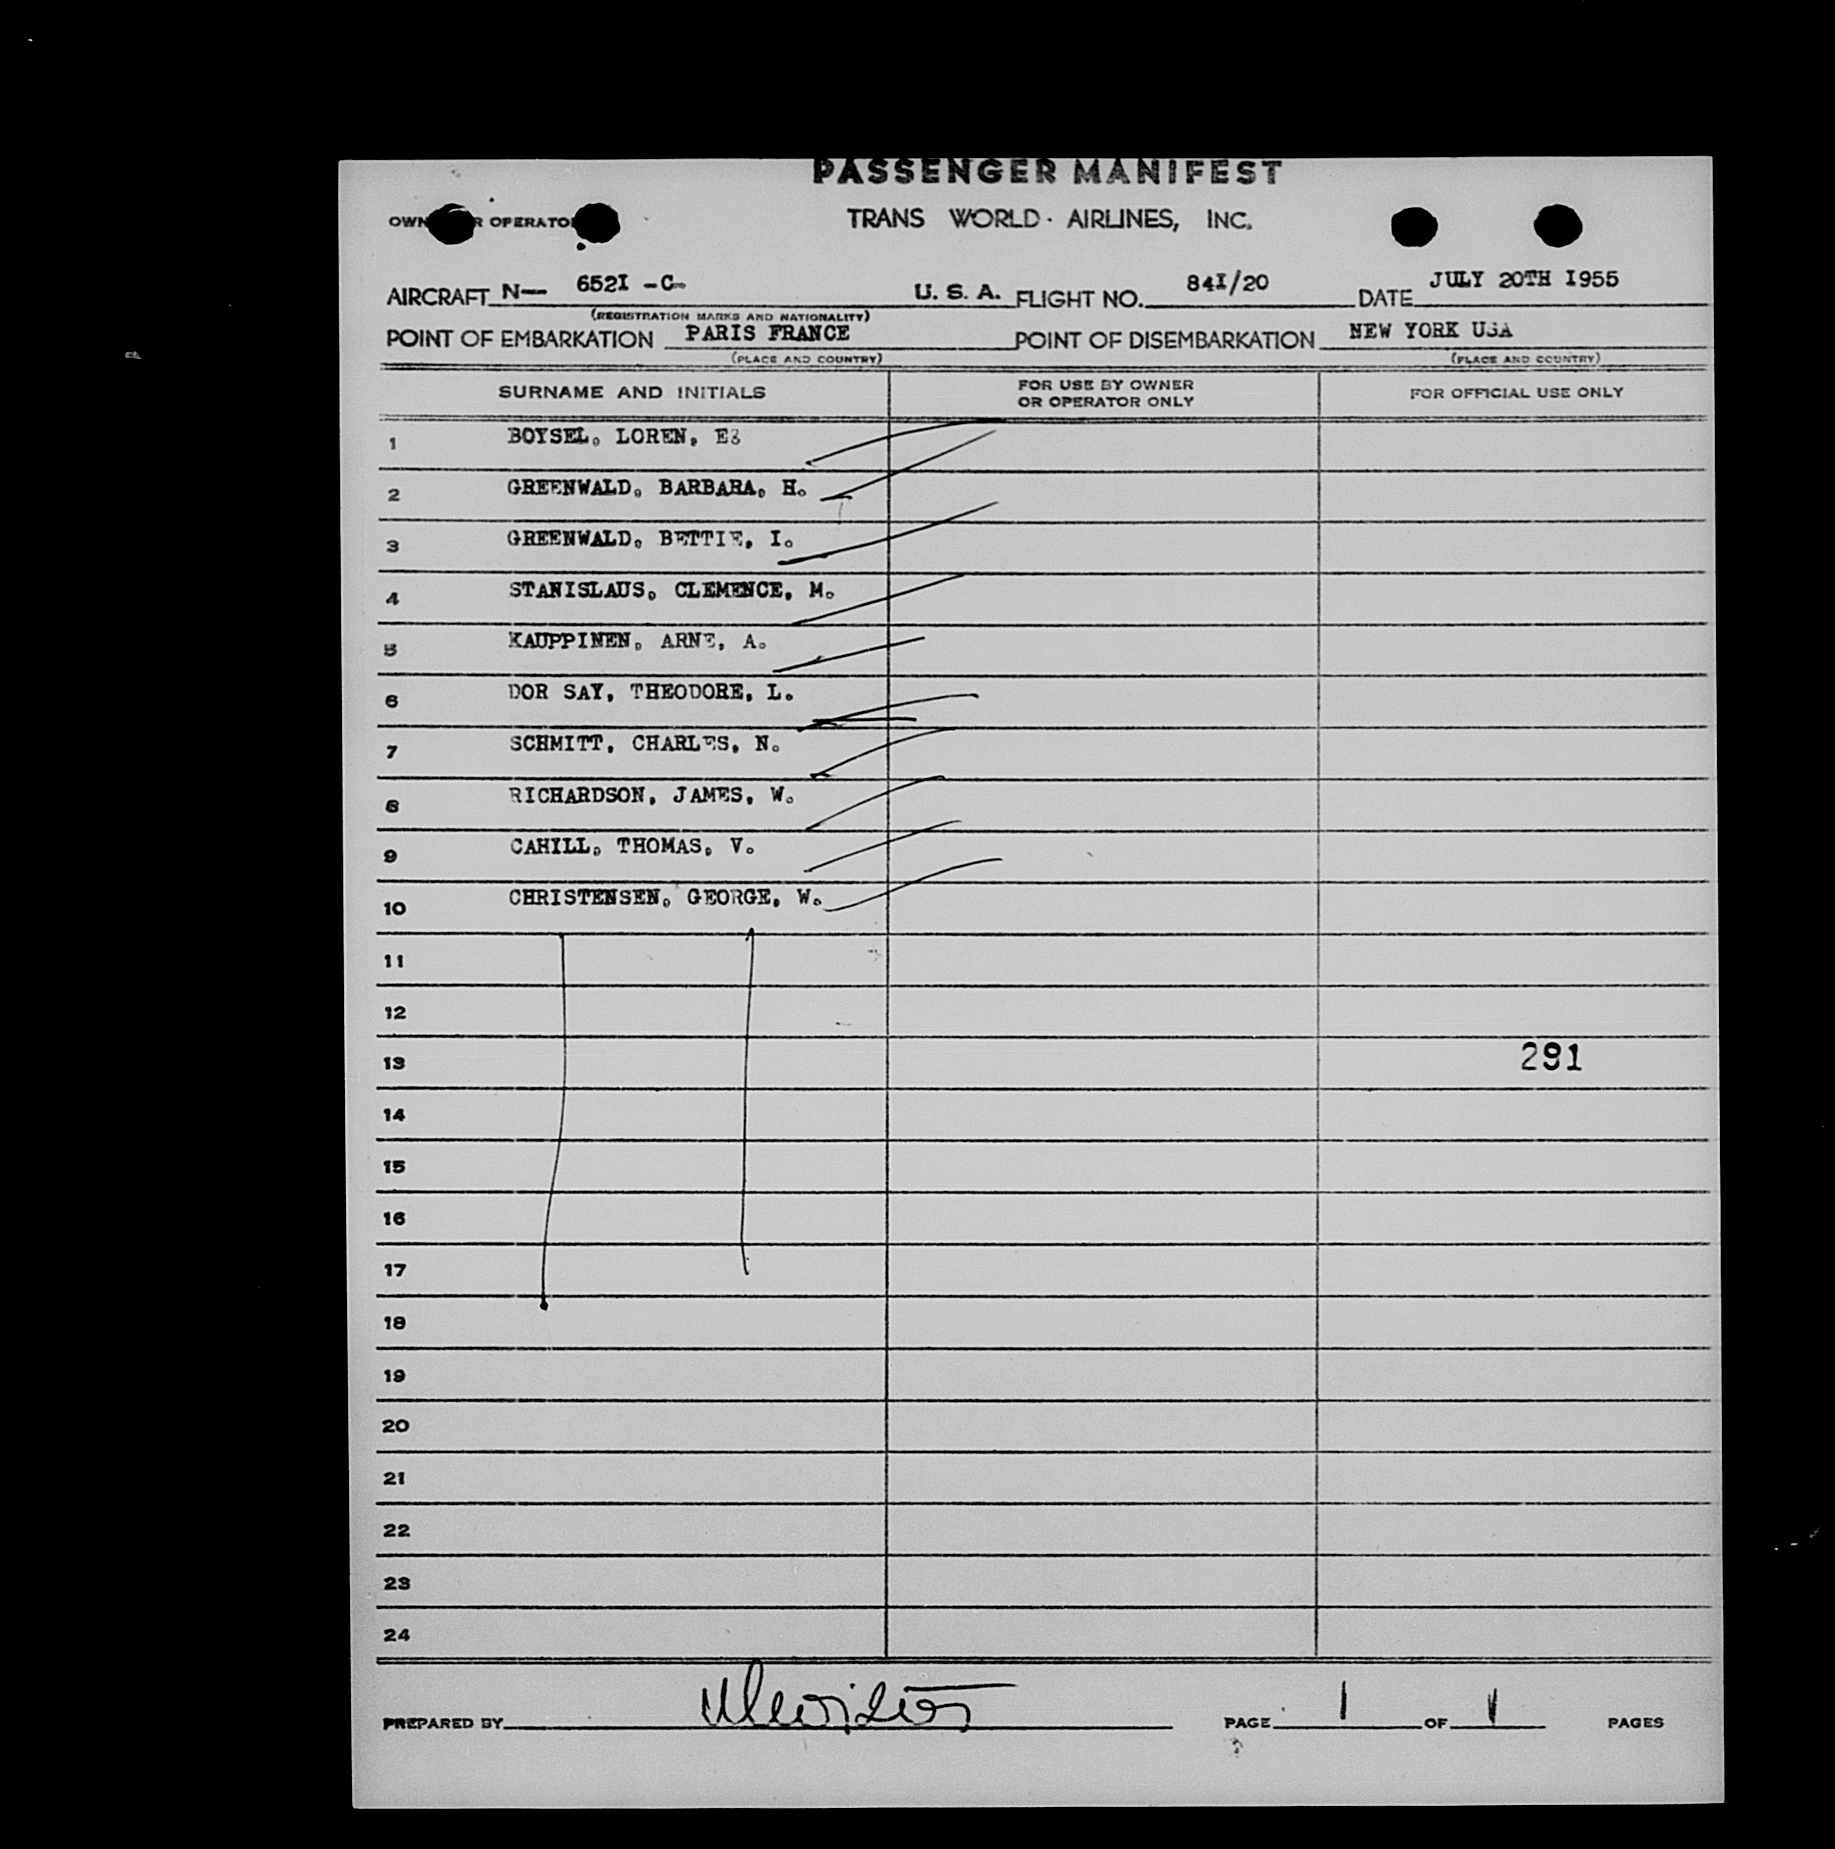 PASSENGER MANIFEST
TRANS WORLD · AIRLINES, INC.
AIRCRAFT N— 652I -C- U. S. A. FLIGHT NO. 84I/20 DATE JULY 20TH I955
(REGISTRATION MARKS AND NATIONALITY)
POINT OF EMBARKATION PARIS FRANCE POINT OF DISEMBARKATION NEW YORK USA
(PLACE AND COUNTRY) (PLACE AND COUNTRY)
SURNAME AND INITIALS FOR USE BY OWNER OR OPERATOR ONLY FOR OFFICIAL USE ONLY
1 BOYSEL, LOREN, E
2 GREENWALD, BARBARA, H.
3 GREENWALD, BETTIE, I.
4 STANISLAUS, CLEMENCE, M.
5 KAUPPINEN, ARNE, A.
6 DOR SAY, THEODORE, L.
7 SCHMITT, CHARLES, N.
8 RICHARDSON, JAMES, W.
9 CAHILL, THOMAS, V.
10 CHRISTENSEN, GEORGE, W.
11
12
13 291
14
15
16
17
18
19
20
21
22
23
24
PREPARED BY PAGE 1 OF 1 PAGES